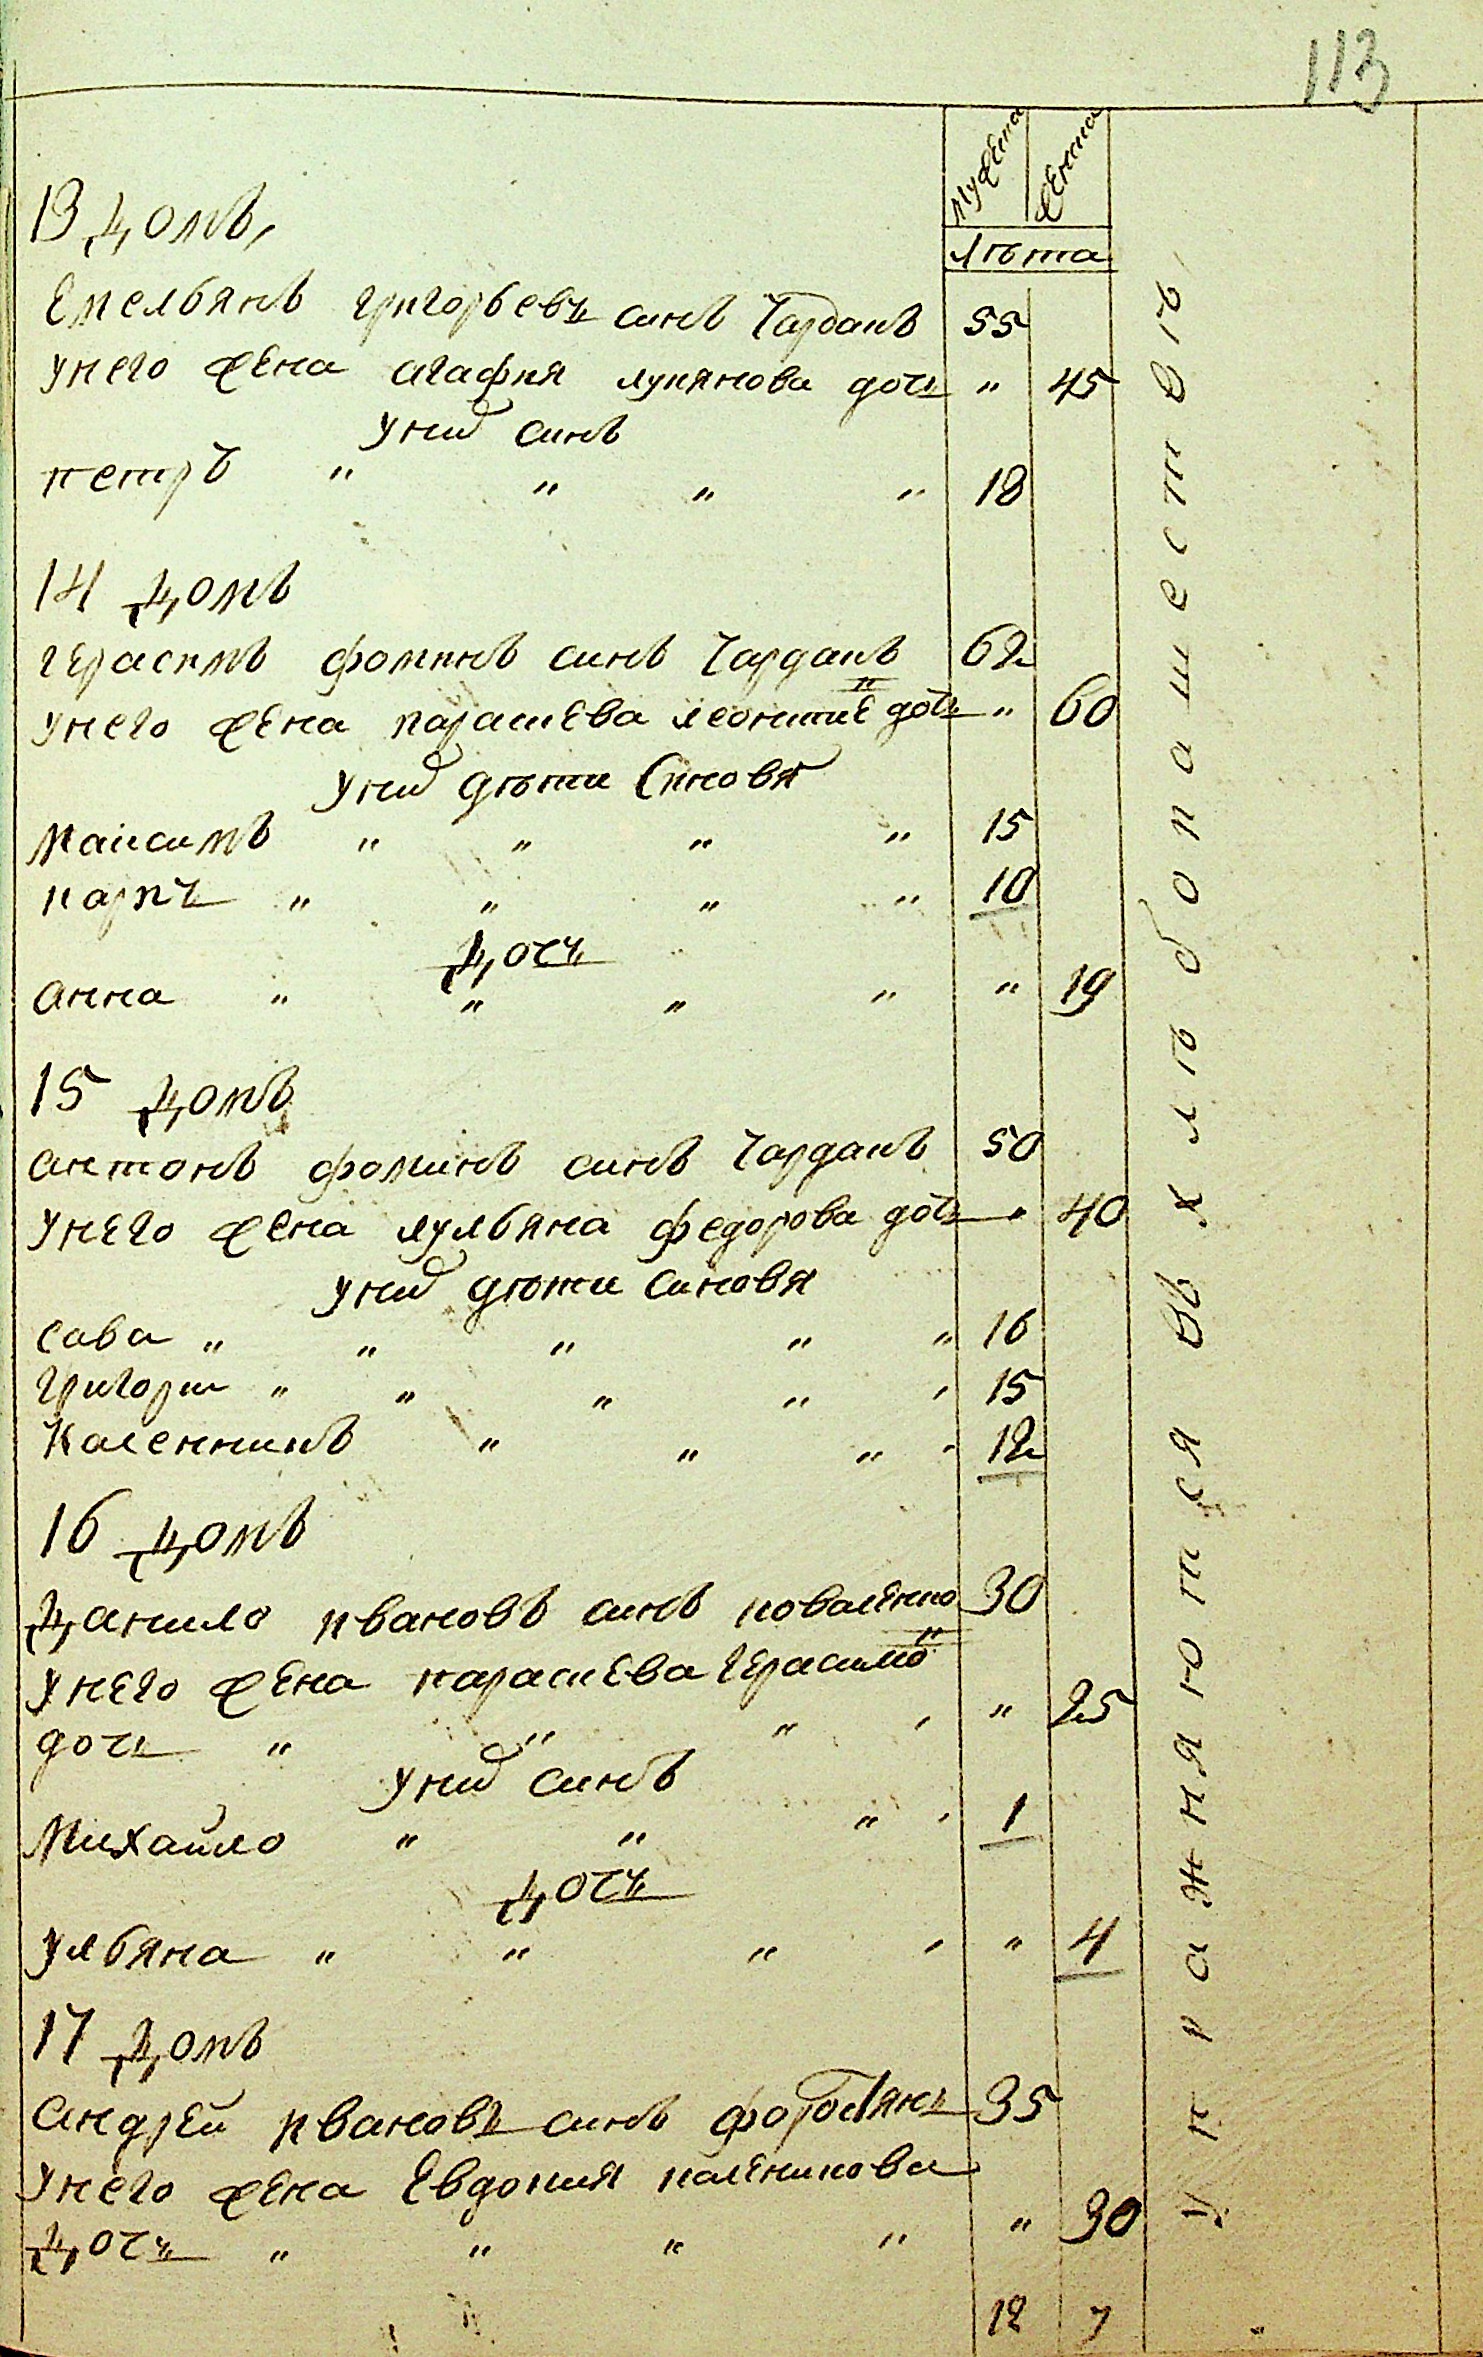 113
Мужеска Женска
Лѣта
13 Домъ,
Емельянъ григорьевъ синъ Чардакъ 55
Унего жена агафия лукянова дочь " 45
Уних синъ
петръ " " " " 18
14 Домъ
герасимъ фоминъ синъ Чардакъ 62
Унего жена параскева леонтие дочь " 60
Уних дѣти Синовя
Максимъ " " " " 15
карпъ " " " " 10
Дочъ
анна " " " " " 19
15 Домъ
антонъ фоминъ синъ Чардакъ 50
Унего жена иульяна федорова дочъ " 40
Уних дѣти синовя
Сава " " " " " 16
Григории " " " " " 15
Каленникъ " " " " 12
16 Домъ
Данило ивановъ синъ коваленко 30
Унего жена параскева герасимо
дочъ " " " " " 25
Уних синъ
Михайло " " " " 1
Дочъ
Ульяна " " " " " 4
17 Домъ
Андрей ивановъ синъ
35
Унего жена Евдокия каленикова
Дочъ " " " " " 30
12 7
Упражняются въ хлѣбопашествѣ